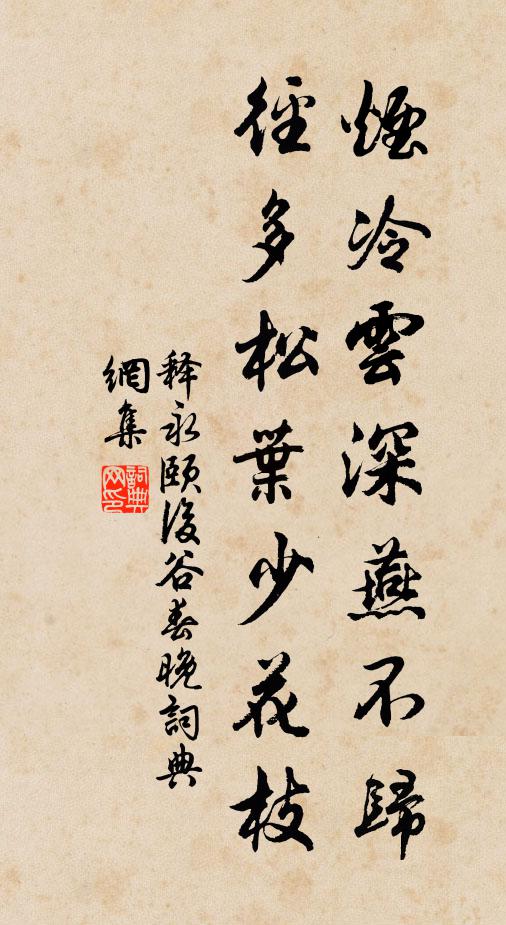 煙冷雲深燕不歸
徑多松葉少花枝
释永頤後谷春晚詞典
網集
詞典
网印